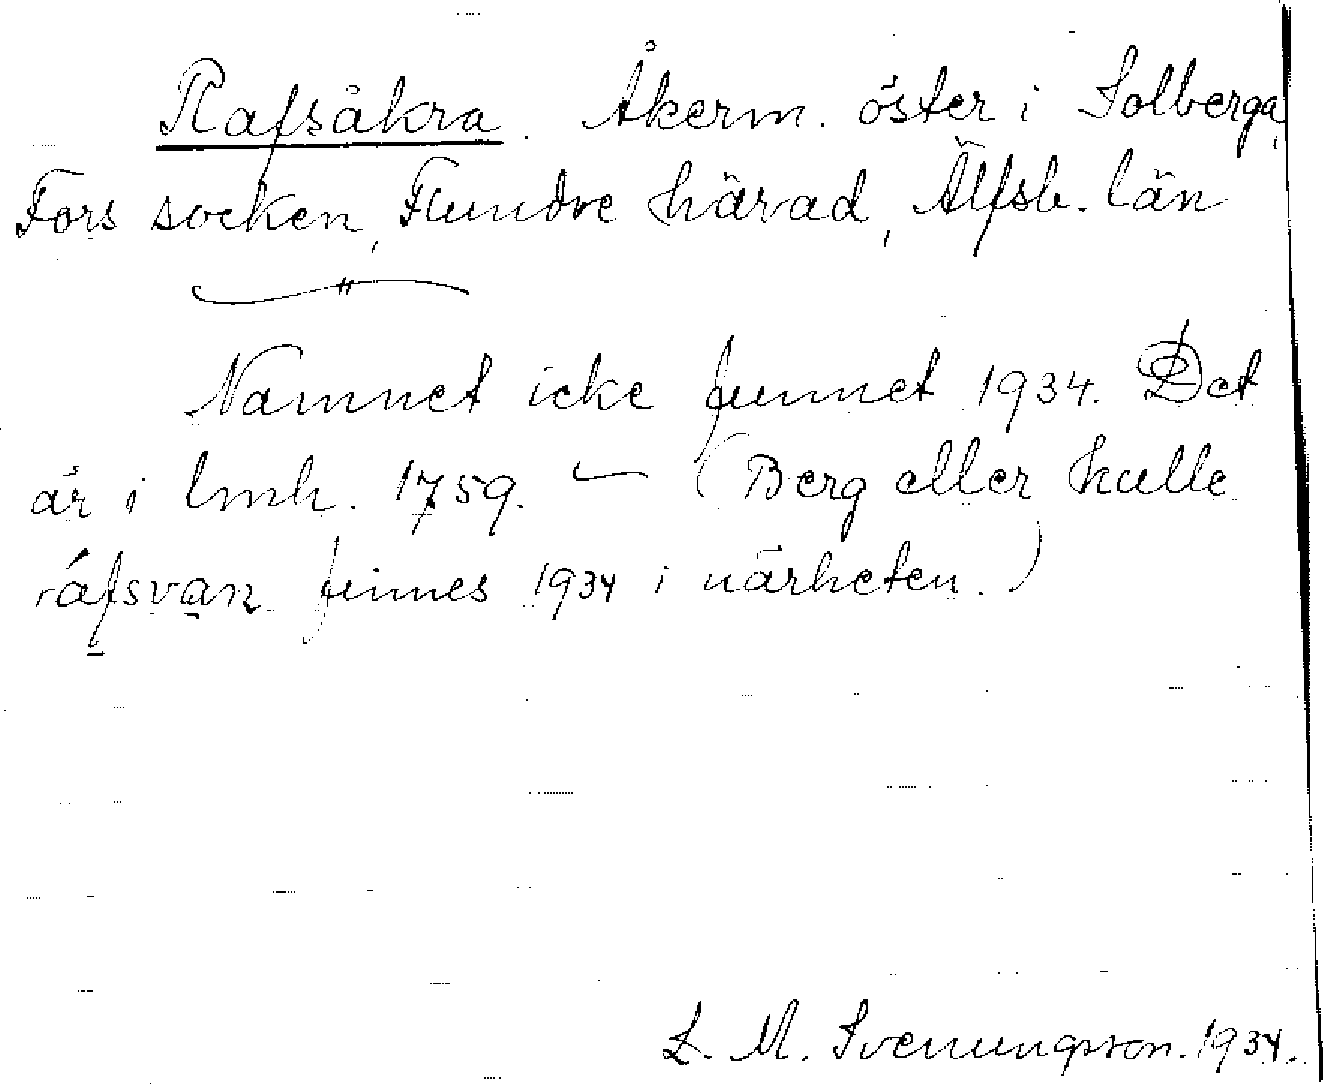 Rafsåkra. Åkerm. öster i Solberga,
Fors socken, Flundre härad, Älfsb. län
Namnet icke funnet 1934. Det
är i lmh. 1759. — (Berg eller kulle
ráfsvan finnes 1934 i närheten.)
L. M. Svenungsson. 1934.